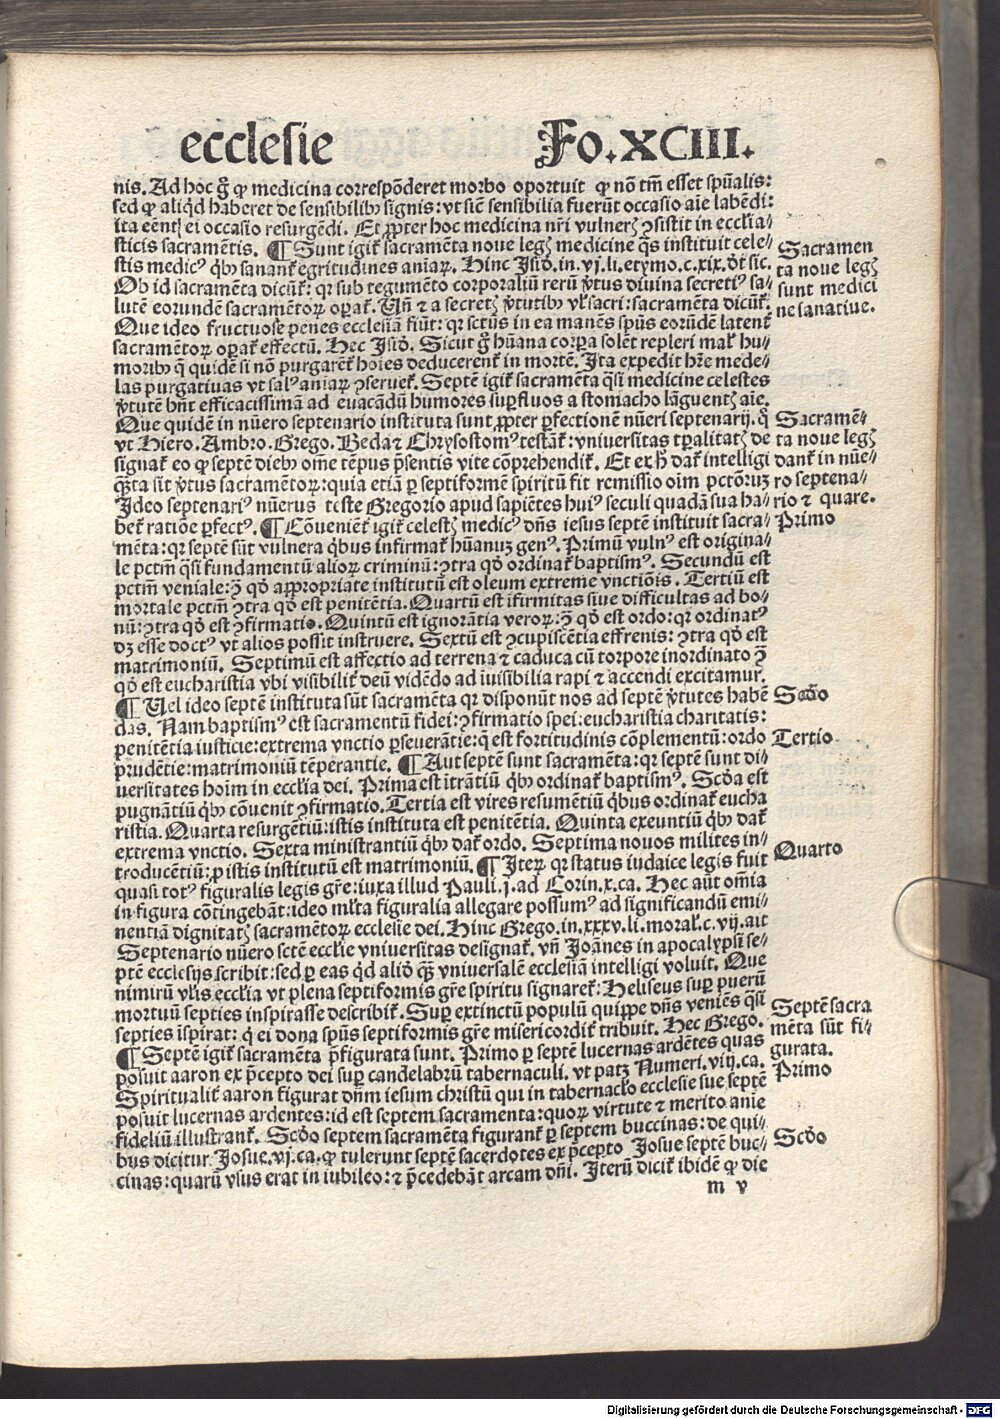 ecclesie Fo. XCIII.
nis. Ad hoc gͦ qͥ medicina correspōderet morbo oportuit qͥ nō tm̄ esset spūalis:
sed qͥ aliqͥd haberet de sensibilibꝰ signis: vt sicͭ sensibilia fuerūt occasio aīe labēdi:
ita eēntꝫ ei occasio resurgēdi. Et ꝓpter hoc medicina nr̄i vulnerꝫ ꝯsistit in ecclīa⸗
sticis sacramētis. ¶ Sunt igit̄ sacramēta noue legꝫ medicine qͣs instituit cele⸗
stis medicꝰ qͥbꝰ sanant̄ egritudines aniarꝝ. Hinc Isid. in. vj. li. etymo. c. xix. dt̄ sic.
Ob id sacramēta dicūt̄: qꝛ sub tegumēto corporaliū rerū v̄tus diuina secretiꝰ sa⸗
lutē eorundē sacramētorꝝ oꝑat̄. Vn̄ ⁊ a secretꝫ v̄tutibꝰ vl̓ sacri: sacramēta dicūt̄.
Que ideo fructuose penes ecclesiā fiūt: qꝛ sctūs in ea manēs spūs eorūdē latent̄
sacramētorꝝ oꝑat̄ effectū. Hec Isid. Sicut gͦ hūana corꝑa solēt repleri mal̓ hu⸗
moribꝰ qͥ quidē si nō purgarēt̄ hoīes deducerent̄ in mortē. Ita expedit hr̄e mede⸗
las purgatiuas vt salꝰ aniarꝝ ꝯseruet̄. Septē igit̄ sacramēta qͣsi medicine celestes
v̄tutē hn̄t efficacissimā ad euacādū humores suꝑfluos a stomacho lāguentꝫ aīe.
Que quidē in nūero septenario instituta sunt ꝓpter ꝑfectionē nūeri septenarij. qͥ
vt Hiero. Ambro. Grego. Beda ⁊ Chrysostomꝰ testāt̄: vniuersitas tꝑalitatꝫ de
signat̄ eo qͥ septē diebꝰ om̄e tēpus p̄sentis vite cōprehendit̄. Et ex h̄ dat̄ intelligi
qͣta sit v̄tus sacramētorꝝ: quia etiā ꝑ septiformē spiritū fit remissio oīm pctōrum
Ideo septenariꝰ nūerus teste Gregorio apud sapiētes huiꝰ seculi quadā sua ha⸗
bet̄ ratiōe ꝑfectꝰ. ¶ Cōuenieͭ igit̄ celestꝫ medicꝰ dn̄s iesus septē instituit sacra⸗
mēta: qꝛ septē sūt vulnera qͥbus infirmat̄ hūanuꝫ genꝰ. Primū vulnꝰ est origina⸗
le pctm̄ qͣsi fundamentū aliorꝝ criminū: ꝯtra qd̄ ordinat̄ baptismꝰ. Secundū est
pctm̄ veniale: ꝯͣ qd̄ appropriate institutū est oleum extreme vnctiōis. Tertiū est
mortale pctm̄ ꝯtra qd̄ est penitētia. Quartū est īfirmitas siue difficultas ad bo⸗
nū: ꝯtra qd̄ est ꝯfirmatio. Quintū est ignorātia verorꝝ: ꝯͣ qd̄ est ordo: qꝛ ordinatꝰ
dꝫ esse doctꝰ vt alios possit instruere. Sextū est ꝯcupiscētia effrenis: ꝯtra qd̄ est
matrimoniū. Septimū est affectio ad terrena ⁊ caduca cū torpore inordinato ꝯͣ
qd̄ est eucharistia vbi visibilit̄ deū vidēdo ad īuisibilia rapi ⁊ accendi excitamur.
¶ Uel ideo septē instituta sūt sacramēta qꝛ disponūt nos ad septē v̄tutes habē
das. Nam baptismꝰ est sacramentū fidei: ꝯfirmatio spei: eucharistia charitatis:
penitētia iusticie: extrema vnctio ꝑseuerātie: qͥ est fortitudinis cōplementū: ordo
prudētie: matrimoniū tēperantie. ¶ Aut septē sunt sacramēta: qꝛ septē sunt di⸗
uersitates hoīm in ecclīa dei. Prima est itrātiū qͥbꝰ ordinat̄ baptismꝰ. Scd̄a est
pugnātiū qͥbꝰ cōuenit ꝯfirmatio. Tertia est vires resumētiū qͥbus ordinat̄ eucha
ristia. Quarta resurgētiū: istis instituta est penitētia. Quinta exeuntiū qͥbꝰ dat̄
extrema vnctio. Sexta ministrantiū qͥbꝰ dat̄ ordo. Septima nouos milites in⸗
troducētiū: ꝓ istis institutū est matrimoniū. ¶ Iterꝝ qꝛ status iudaice legis fuit
quasi totꝰ figuralis legis gr̄e: iuxa illud Pauli. j. ad Corin. x. ca. Hec aūt om̄ia
in figura cōtingebāt: ideo ml̓ta figuralia allegare possumꝰ ad significandū emi⸗
nentiā dignitatꝫ sacramētorꝝ ecclesie dei. Hinc Grego. in. xxxv. li. moral̓. c. vij. ait
Septenario nūero scte̅ ecclīe vniuersitas designat̄. vn̄ Joānes in apocalypsi se⸗
ptē ecclesijs scribit: sed ꝑ eas qͥd aliō qͣꝫ vniuersalē ecclesiā intelligi voluit. Que
nimirū vl̓is ecclīa vt plena septiformis gr̄e spiritu signaret̄: Heliseus suꝑ puerū
mortuū septies inspirasse describit̄. Suꝑ extinctū populū quippe dn̄s veniēs qͣsi
septies īspirat: qͥ ei dona spūs septiformis gr̄e misericordit̄ tribuit. Hec Grego.
¶ Septē igit̄ sacramēta p̄figurata sunt. Primo ꝑ septē lucernas ardētes quas
posuit aaron ex p̄cepto dei suꝑ candelabrū tabernaculi. vt patꝫ Numeri. viij. ca.
Spiritualit̄ aaron figurat dn̄m iesum christū qui in tabernaclo ecclesie sue septē
posuit lucernas ardentes: id est septem sacramenta: quorꝝ virtute ⁊ merito anie
fideliū illustrant̄. Scd̄o septem sacramēta figurant̄ ꝑ septem buccinas: de qui⸗
bus dicitur Josue. vj. ca. qͥ tulerunt septē sacerdotes ex p̄cepto Josue septē buc⸗
cinas: quarū vsus erat in iubileo: ⁊ p̄cedebāt arcam dn̄i. Iterū dicit̄ ibidē qͥ die
m v
Sacramen
ta noue legꝫ
sunt medici
ne sanatiue.
Sacramē⸗
ta noue legꝫ
dant̄ in nūe⸗
ro septena⸗
rio ⁊ quare.
Primo
Scd̄o
Tertio
Quarto
Septē sacra
mēta sūt fi⸗
gurata.
Primo
Scd̄o
Digitalisierung gefördert durch die Deutsche Forschungsgemeinschaft - DFG